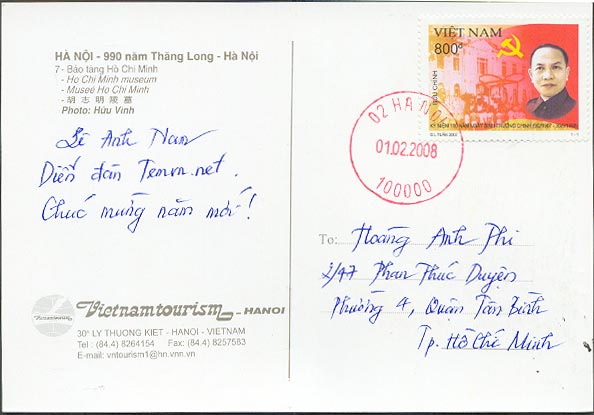 HÀ NỘI - 990 năm Thăng Long - Hà Nội
7 - Bảo tàng Hồ Chí Minh
- Ho Chi Minh museum
- Museé Ho Chi Minh
- 胡志明陵墓
Photo: Hữu Vinh
Lê Anh Nam
Diễn đàn Temvn.net.
Chúc mừng năm mới!
Vietnamtourism - HANOI
30A LY THUONG KIET - HANOI - VIETNAM
Tel : (84.4) 8264154 Fax: (84.4) 8257583
E-mail: vntourism1@hn.vnn.vn
VIỆT NAM
800đ
BƯU CHÍNH
02 HA NOI
01.02.2008
100000
To: Hoàng Anh Phi
2/47 Phan Thúc Duyện
Phường 4, Quận Tân Bình
Tp. Hồ Chí Minh